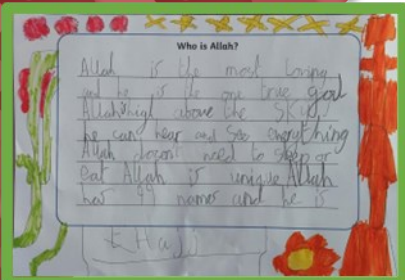 Who is Allah?
Allah is the most loving
and he is the one true god
Allah is high above the sky,
he can hear and see everything
Allah doesn't need to sleep or
eat Allah is unique Allah
has 99 names and he is